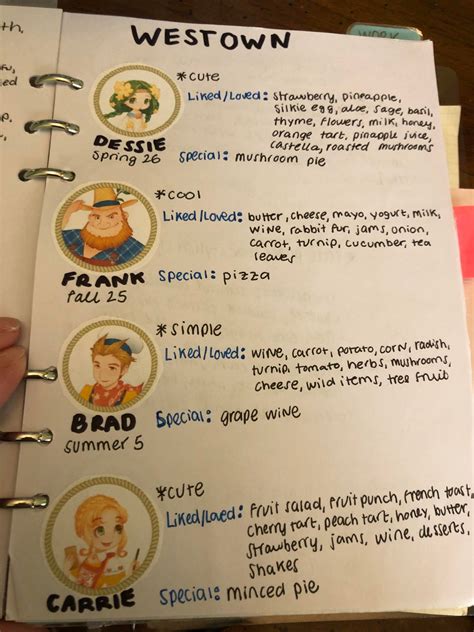 WORK
WESTOWN
*cute
Liked/Loved: strawberry, pineapple,
silkie egg, aloe, sage, basil,
thyme, flowers, milk, honey,
orange tart, pineapple juice,
castella, roasted mushrooms
DESSIE
Spring 26
Special: mushroom pie
*cool
Liked/Loved: butter, cheese, mayo, yogurt, milk,
wine, rabbit fur, jams, onion,
carrot, turnip, cucumber, tea
leaves
FRANK
fall 25
Special: pizza
*simple
Liked/Loved: wine, carrot, potato, corn, radish,
turnip, tomato, herbs, mushrooms,
cheese, wild items, tree fruit
BRAD
summer 5
Special: grape wine
*cute
Liked/Loved: fruit salad, fruit punch, french toast,
cherry tart, peach tart, honey, butter,
strawberry, jams, wine, desserts,
shakes
CARRIE
Special: minced pie